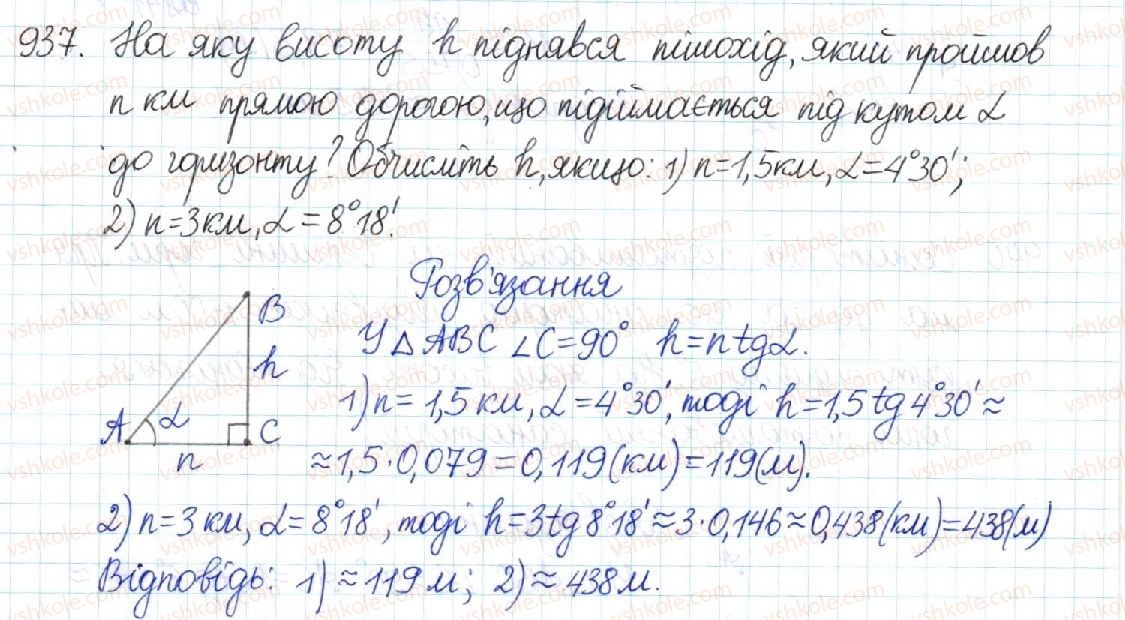 937. На яку висоту h піднявся пішохід, який пройшов
n км прямою дорогою, що підіймається під кутом α
до горизонту? Обчисліть h, якщо: 1) n=1,5км, α=4°30';
2) n=3км, α=8°18'.
Розв'язання
B
h
A α C
n
У △ABC ∠C=90° h=ntgα.
1) n=1,5км, α=4°30', тоді h=1,5tg4°30'≈
≈1,5·0,079=0,119(км)=119(м).
2) n=3км, α=8°18', тоді h=3tg8°18'≈3·0,146≈0,438(км)=438(м)
Відповідь: 1) ≈119м; 2) ≈438м.